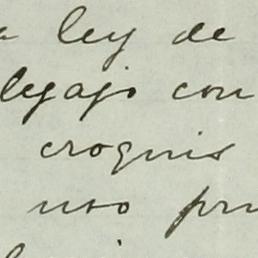 a ley de
legajo con
croquis
uso pru